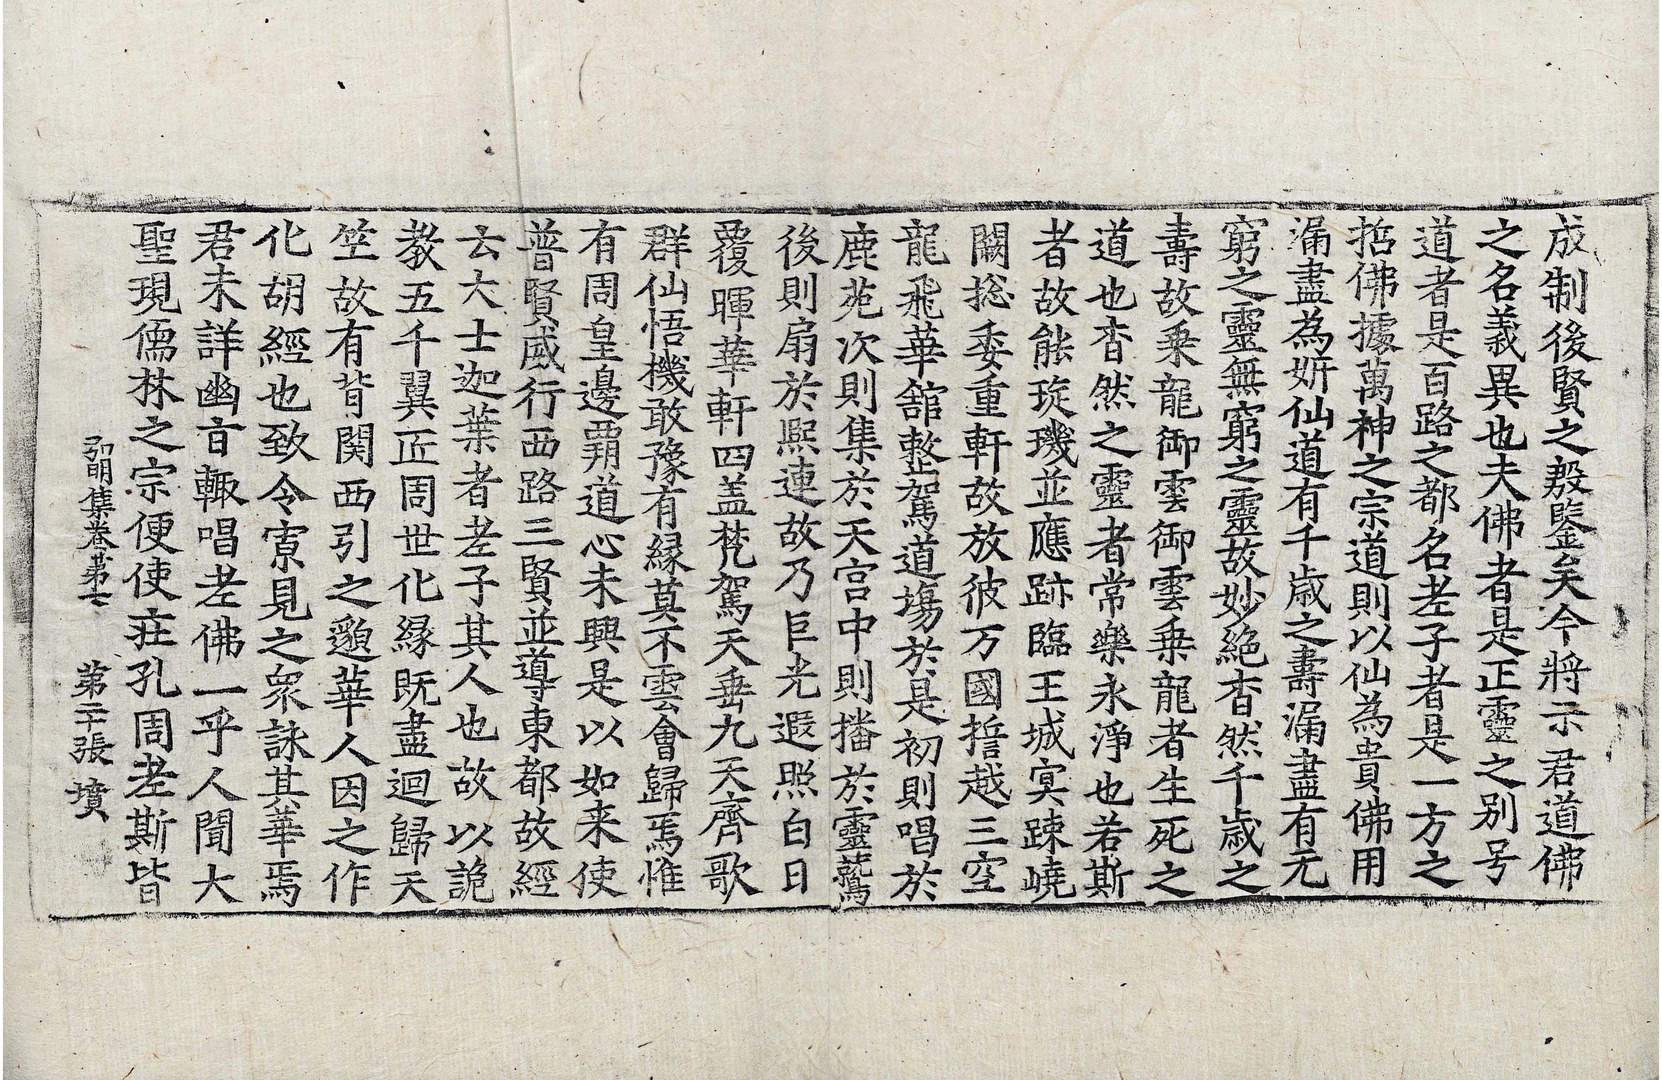 成制後賢之殷鑒矣今將示君道佛
之名義異也夫佛者是正靈之别号
道者是百路之都名老子者是一方之
哲佛據萬神之宗道則以仙為貴佛用
漏盡為妍仙道有千歳之壽漏盡有无
窮之靈無窮之靈故妙絶杳然千歳之
壽故乗龍御雲御雲乗龍者生死之
道也杳然之靈者常樂永淨也若斯
者故能琁璣並應跡臨王城冥踈嶢
闕捴委重軒故放彼万國誓越三空
龍飛華舘整駕道塲於是初則唱於
鹿苑次則集於天宫中則播於靈鷲
後則扇於熙連故乃巨光遐照白日
覆暉華軒四盖梵駕天垂九天齊歌
群仙悟機敢豫有縁莫不雲會歸焉惟
有周皇邊覇道心未興是以如来使
普賢威行西路三賢並導東都故經
云大士迦葉者老子其人也故以詭
教五千翼匠周世化縁既盡迴歸天
竺故有背関西引之邈華人因之作
化胡經也致令寡見之衆詠其華焉
君未詳幽㫖輙唱老佛一乎人聞大
聖現儒林之宗便使荘孔周老斯皆
弘明集卷第七　第二十張　墳